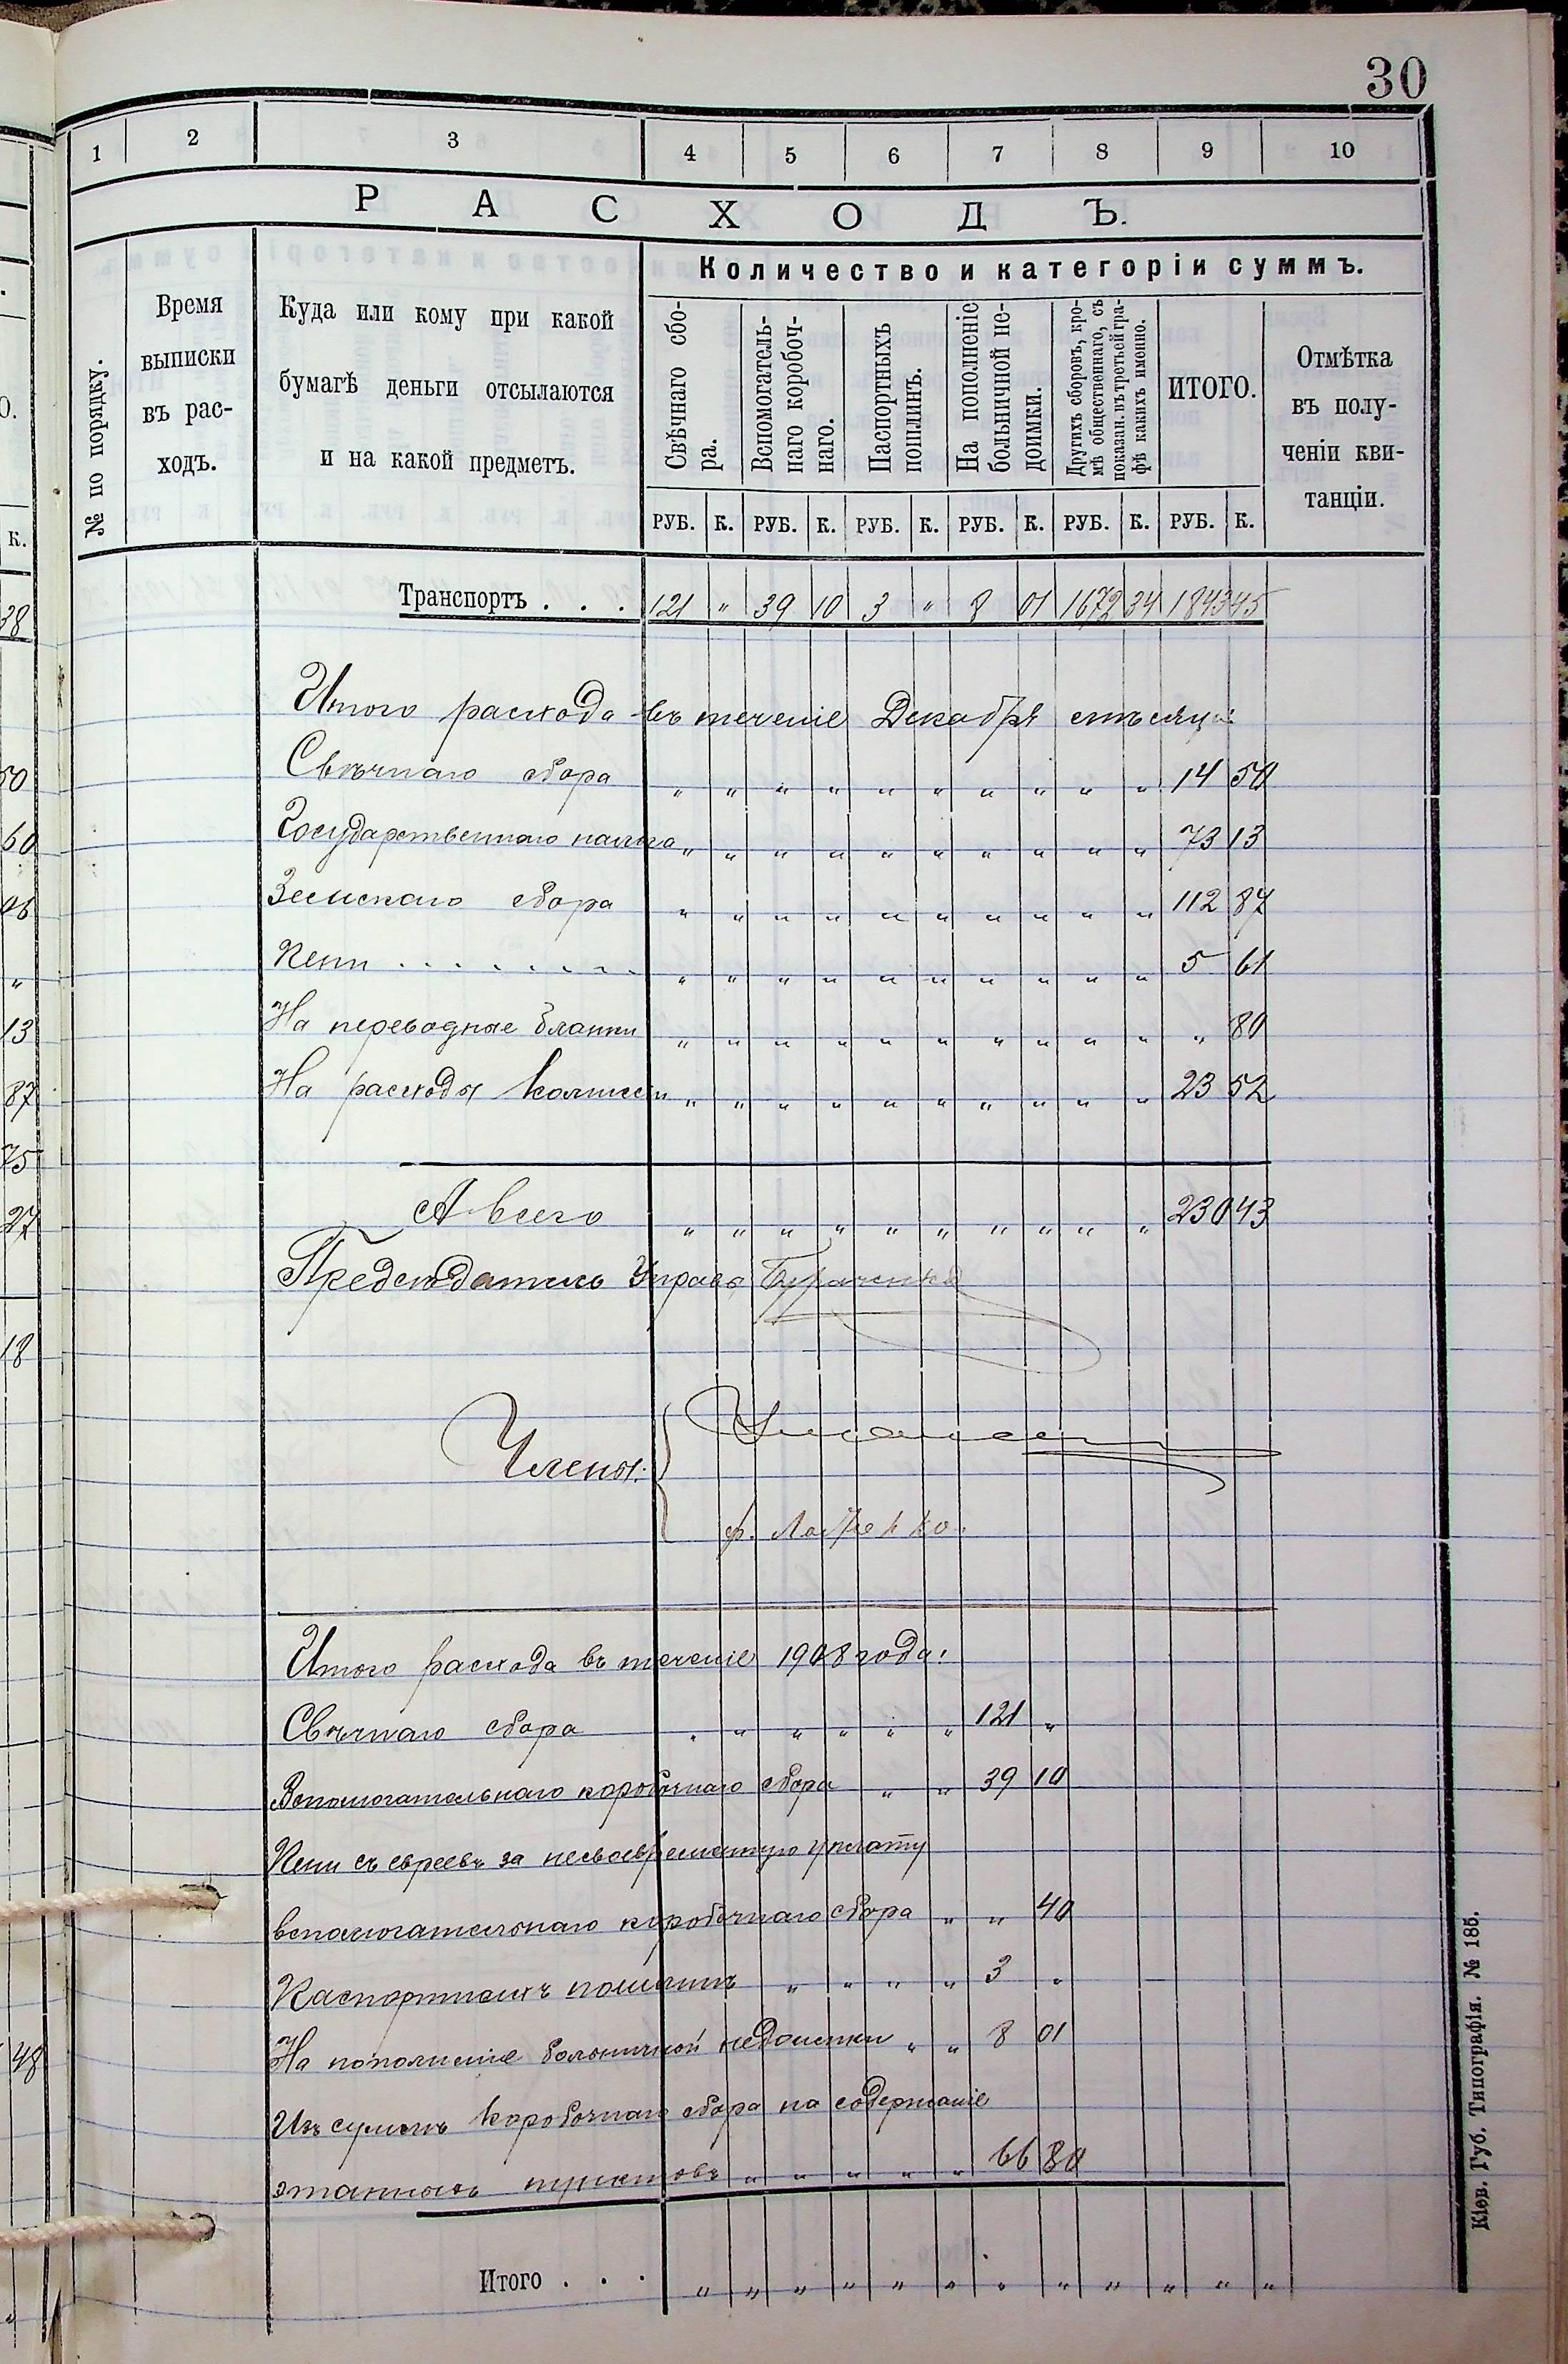 30
1 2 3 4 5 6 7 8 9 10
РАСХОДЪ.
№ по порядку.
Время
выписки
въ рас-
ходъ.
Куда или кому при какой
бумагѣ деньги отсылаются
и на какой предметъ.
Количество и категоріи суммъ.
Свѣчнаго сбо-
ра.
Вспомогатель-
наго коробоч-
наго.
Паспортныхъ
пошлинъ.
На пополненіе
больничной не-
доимки.
Другихъ сборовъ, кро-
мѣ общественнаго, съ
показан. въ третьей гра-
фѣ какихъ именно.
ИТОГО.
Отмѣтка
въ полу-
ченіи кви-
танціи.
РУБ. К. РУБ. К. РУБ. К. РУБ. К. РУБ. К. РУБ. К.
Транспортъ . . . 121 " 39 10 3 " 8 01 1672 34 1843 45
Итого расхода въ теченіе Декабря мѣсяца:
Свѣчнаго сбора " " " " " " " " " " 14 50
Государственнаго налога " " " " " " " " " " 73 13
Земскаго сбора " " " " " " " " " " 112 87
Пени . . . . . . . . " " " " " " " " " " 5 61
На переводные бланки " " " " " " " " " " " 80
На расходы Комиссіи " " " " " " " " " " 23 52
А всего " " " " " " " " " " 230 43
Предсѣдатель Управы
Члены:
Итого расхода въ теченіе 1908 года:
Свѣчнаго сбора " " " " " " 121 "
Вспомогательнаго коробочнаго сбора " " 39 10
Пени съ евреевъ за несвоевременную уплату
вспомогательнаго коробочнаго сбора " " 40
Паспортныхъ пошлинъ " " " " 3 "
На пополненіе больничной недоимки " " 8 01
Изъ суммъ коробочнаго сбора на содержаніе
этапныхъ пунктовъ " " " " " 66 80
Итого . . . " " " " " " " " " " " "
Кіев. Губ. Типографія. № 186.
38
50
60
06
"
13
87
75
27
18
48